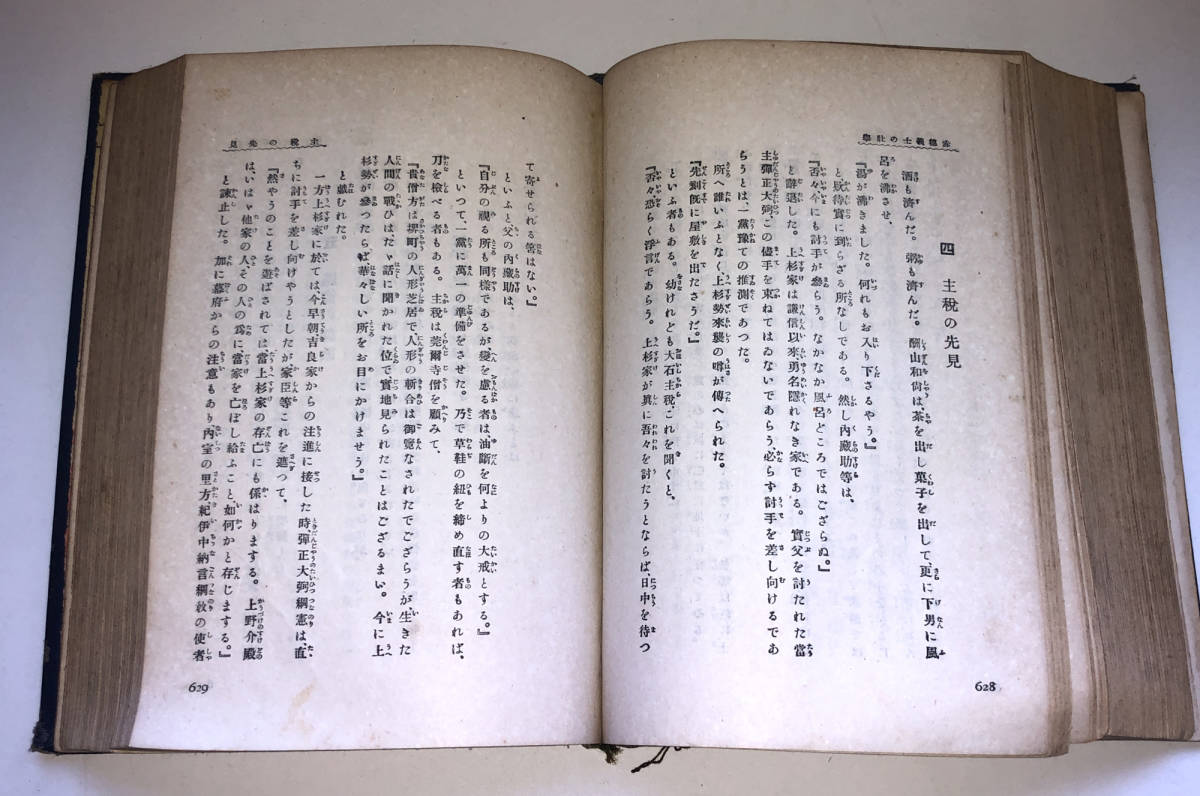 赤穂義士の壯擧
四　主税の先見
酒も済んだ。粥も済んだ。酬山和尙は茶を出し菓子を出して、更に下男に風
呂を沸させ、
『湯が沸きました。何れもお入り下さるやう。』
と欵待實に到らざる所なしである。然し內藏助等は、
『否々今にも討手が參らう。なかなか風呂どころではござらぬ。』
と辭退した。上杉家は謙信以來勇名隱れなき家である。實父を討たれた當
主彈正大弼、この儘手を束ねてはゐないであらう必らず討手を差し向けるであ
らうとは、一黨豫ての推測であつた。
所へ誰いふとなく上杉勢來襲の噂が傳へられた。
『先刻旣に屋敷を出たさうだ。』
といふ者もある。幼けれども大石主税、これを聞くと、
『否々恐らく浮言であらう。上杉家が眞に吾々を討たうとならば、日中を待つ
628
主税の先見
て寄せられる筈はない。』
といふと、父の內藏助は、
『自分の視る所も同樣であるが變を慮る者は油斷を何よりの大戒とする。』
といつて、一黨に萬一の準備をさせた。乃で草鞋の紐を締め直す者もあれば、
刀を檢べる者もある。主税は莞爾寺僧を顧みて、
『貴僧方は堺町の人形芝居で人形の斬合は御覽なされたでござらうが生きた
人間の戰ひはたゞ話に聞かれた位で實地見られたことはござるまい。今に上
杉勢が參つたらば華々しい所をお目にかけませう。』
と戱むれた。
一方上杉家に於ては今早朝吉良家からの注進に接した時、彈正大弼綱憲は、直
ちに討手を差し向けやうとしたが家臣等これを遮つて、
『然やうのことを遊ばされては當上杉家の存亡にも係はりまする。上野介殿
は、いはゞ他家の人、その人の爲に當家を亡ぼし給ふこと、如何かと存じまする。』
と諫止した。加に幕府からの注意もあり內室の里方紀伊中納言綱敎の使者
629